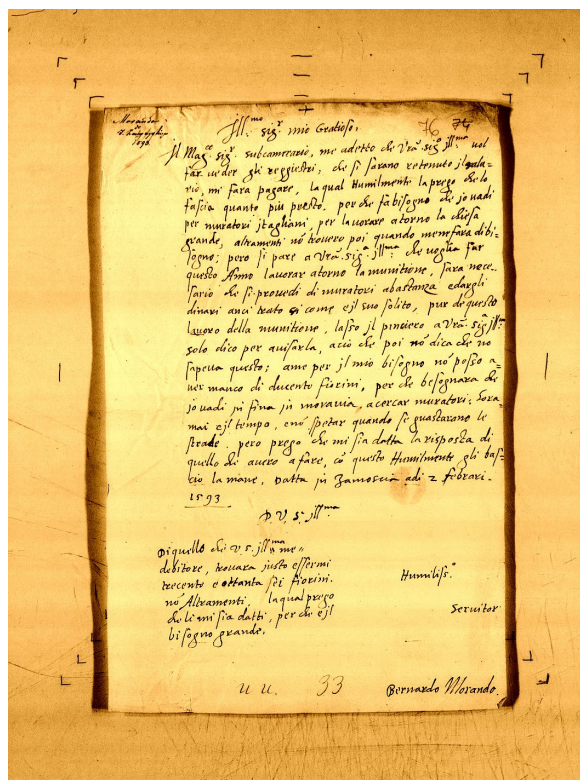 Morando
1593
Jll.mo sig.r mio Gratioso,
76 74
Jl Mag.co sig.r subcamerario, me adetto che Vrã. sig.a jll.ma vol
far veder gli reggiestri, che si sarano retenuto jl sala-
rio, mi fara pagare, laqual Humilmente la prego che lo
fascia quanto piu presto, per che fa bisogno che jo vadi
per muratori jtagliani, per lavorare atorno la chiesa
grande, altramenti nõ trovero poi quando mene fara dibi-
sogno; pero si pare a Vrã. sig.a jll.ma che voglia far
questo Anno lavorar atorno la munitione, sara nece-
sario che si provedi di muratori abastanza edargli
dinari anci trato si come ejl suo solito, pur de questo
lavoro della munitione, lasso jl pinciero a Vrã. sig.a jll.ma
solo dico per avisarla, acio che poi nõ dica che no
sapeva questo; ame per jl mio bisogno nõ posso a-
ver manco di ducento fiorini, per che besognara che
jo vadi jn fina jn moravia, acercar muratori; hora-
mai ejl tempo, enõ spetar quando se guastarono le
strade. pero prego che mi sia datta la risposta di
quello che avero afare, cõ questo Humilmente gli bas-
cio la mane, Datta jn Zamoscia adi 2 febrari.
1593
D. V. S. jll.ma
Di quello che V. S. jll.ma me
debitore, trovara justo essermi
trecente e ottanta sei fiorini.
nõ Altramenti, laqual prego
che li mi sia datti, per che ejl
bisogno grande.
Humiliss.o
Servitor
Bernardo Morando.
u u. 33